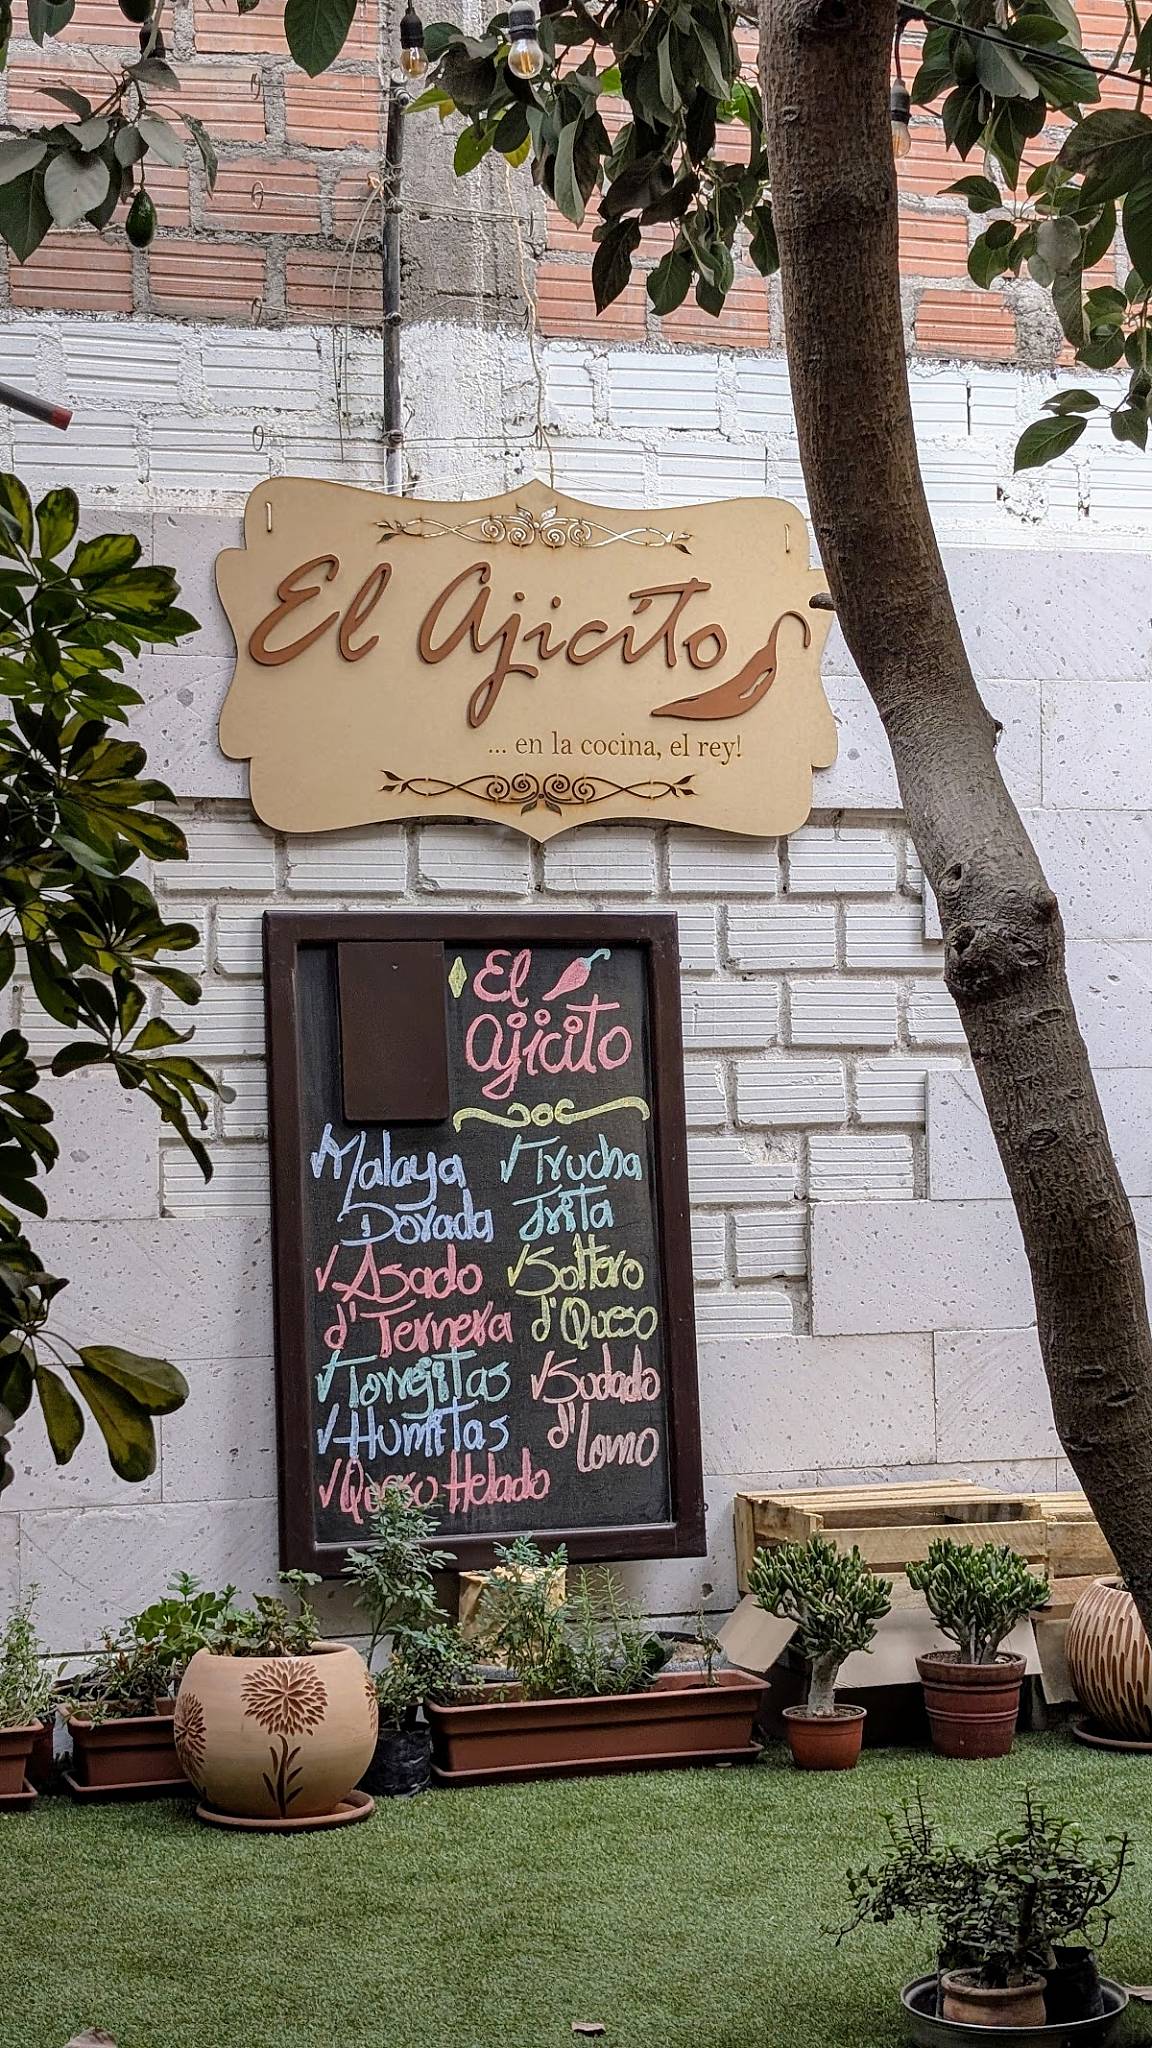 El Ajicito
... en la cocina, el rey!
El
Ajicito
Malaya
Dorada
Asado
d' Ternera
Torrejitas
Humitas
Queso Helado
Trucha
frita
Soltero
d' Queso
Sudado
d' Lomo